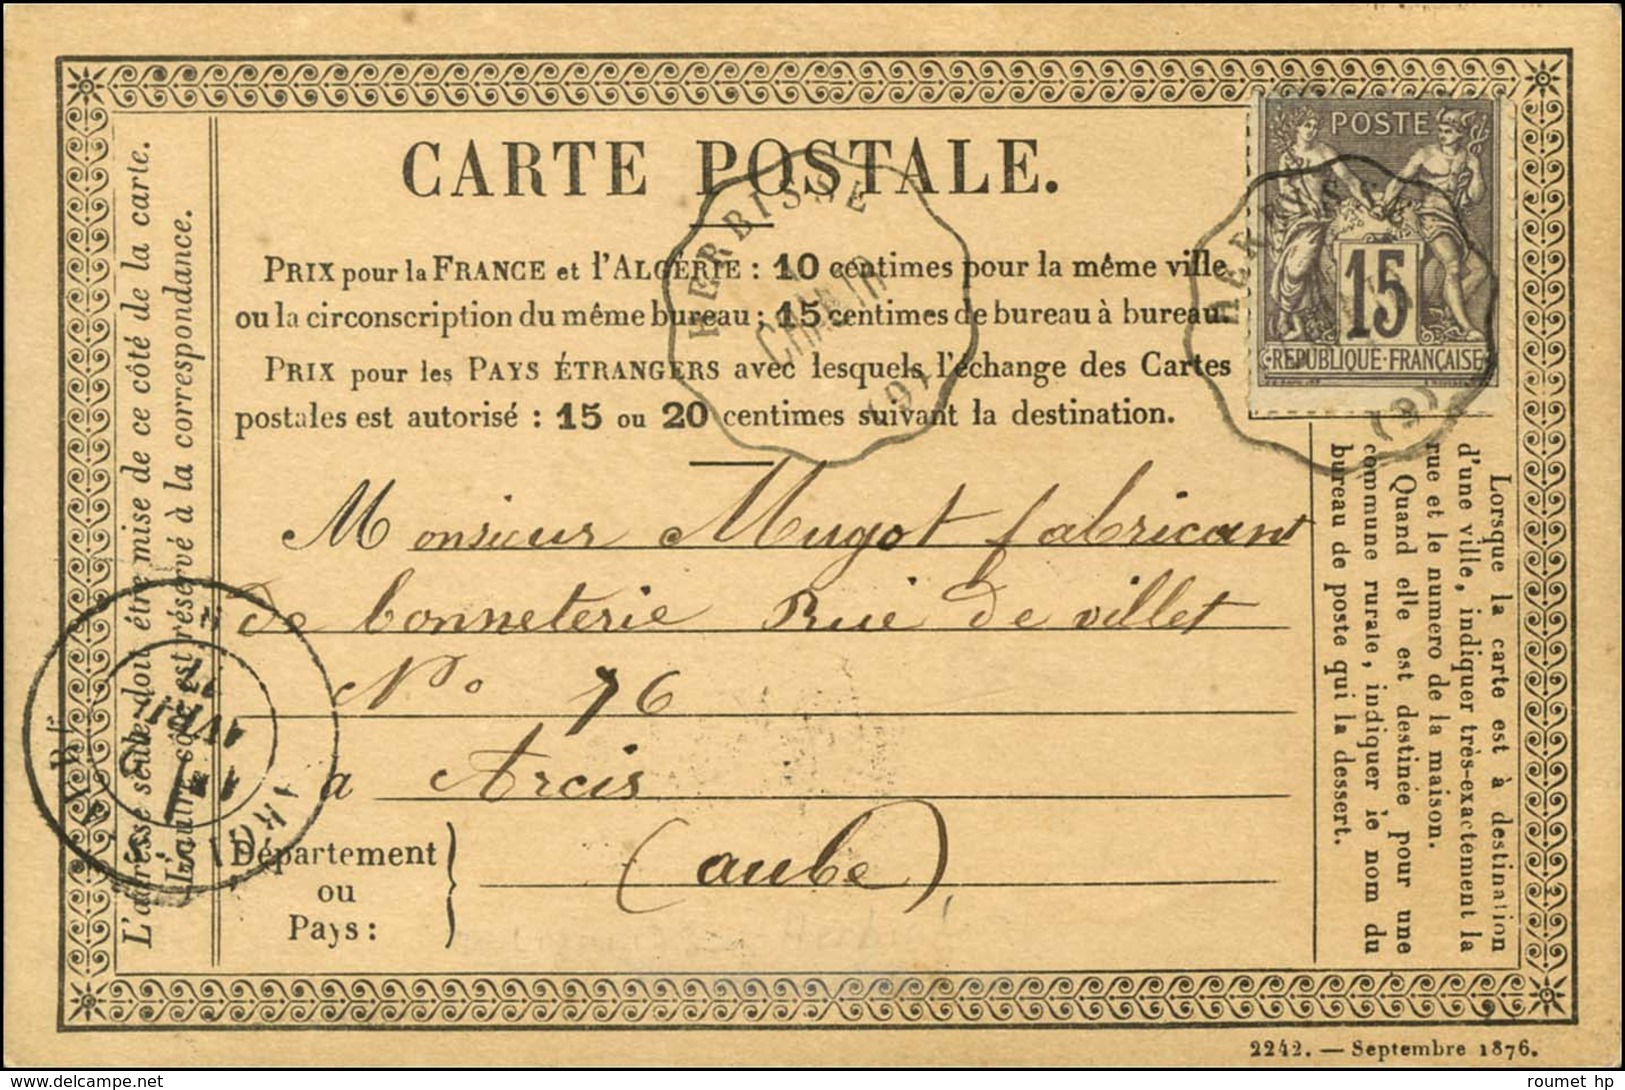 CARTE POSTALE.
POSTE
15
RÉPUBLIQUE·FRANÇAISE
HERBISSE
CHALO
(9)
HERBISSE
(9)
PRIX pour la FRANCE et l'ALGÉRIE : 10 centimes pour la même ville
ou la circonscription du même bureau ; 15 centimes de bureau à bureau.
PRIX pour les PAYS ÉTRANGERS avec lesquels l'échange des Cartes
postales est autorisé : 15 ou 20 centimes suivant la destination.
L'adresse seule doit être mise de ce côté de la carte.
L'autre côté est réservé à la correspondance.
Monsieur Mugot fabricant
de bonneterie Rue de villet
No 76
a Arcis
(aube)
Département
ou
Pays :
AVRIL
77
Lorsque la carte est à destination
d'une ville, indiquer très-exactement la
rue et le numero de la maison.
Quand elle est destinée pour une
commune rurale, indiquer le nom du
bureau de poste qui la dessert.
2242. — Septembre 1876.
roumet hp